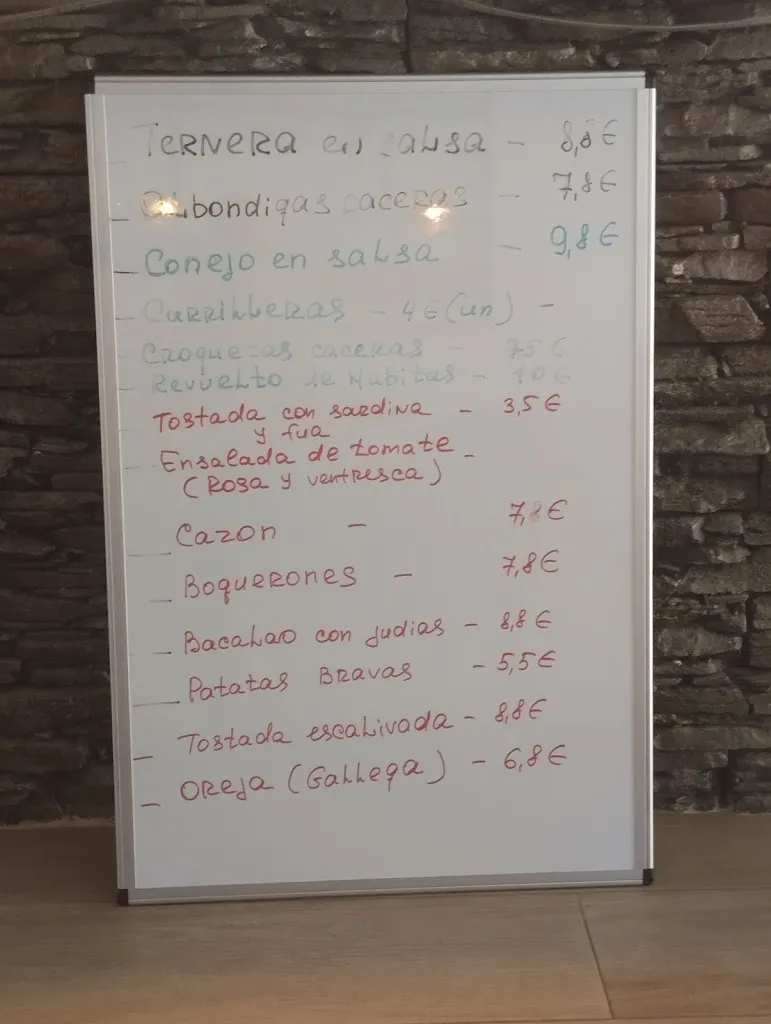 TERNERA en salsa - 8,8€
- Albondigas caceras - 7,8€
- Conejo en salsa - 9,8€
- Carrilleras - 4€ (un) -
- Croquetas caceras - 75€
- Revuelto de Habitas - 10€
- Tostada con sardina - 3,5€
y fua
- Ensalada de tomate -
(Rosa y ventresca)
- Cazon - 7,8€
- Boquerones - 7,8€
- Bacalao con judias - 8,8€
- Patatas Bravas - 5,5€
- Tostada escalivada - 8,8€
- Oreja (Gallega) - 6,8€